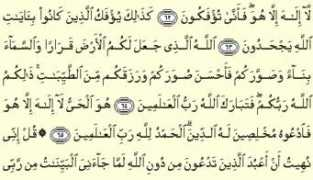 لَّآ إِلَـٰهَ إِلَّا هُوَۖ فَأَنَّىٰ تُؤْفَكُونَ ٦٢ كَذَٰلِكَ يُؤْفَكُ ٱلَّذِينَ كَانُواْ بِـَٔايَـٰتِ
ٱللَّهِ يَجْحَدُونَ ٦٣ ٱللَّهُ ٱلَّذِى جَعَلَ لَكُمُ ٱلْأَرْضَ قَرَارًا وَٱلسَّمَآءَ
بِنَآءً وَصَوَّرَكُمْ فَأَحْسَنَ صُوَرَكُمْ وَرَزَقَكُم مِّنَ ٱلطَّيِّبَـٰتِۚ ذَٰلِكُمُ
ٱللَّهُ رَبُّكُمْۖ فَتَبَارَكَ ٱللَّهُ رَبُّ ٱلْعَـٰلَمِينَ ٦٤ هُوَ ٱلْحَىُّ لَآ إِلَـٰهَ إِلَّا هُوَ
فَٱدْعُوهُ مُخْلِصِينَ لَهُ ٱلدِّينَۗ ٱلْحَمْدُ لِلَّهِ رَبِّ ٱلْعَـٰلَمِينَ ٦٥ ۞ قُلْ إِنِّى
نُهِيتُ أَنْ أَعْبُدَ ٱلَّذِينَ تَدْعُونَ مِن دُونِ ٱللَّهِ لَمَّا جَآءَنِىَ ٱلْبَيِّنَـٰتُ مِن رَّبِّى